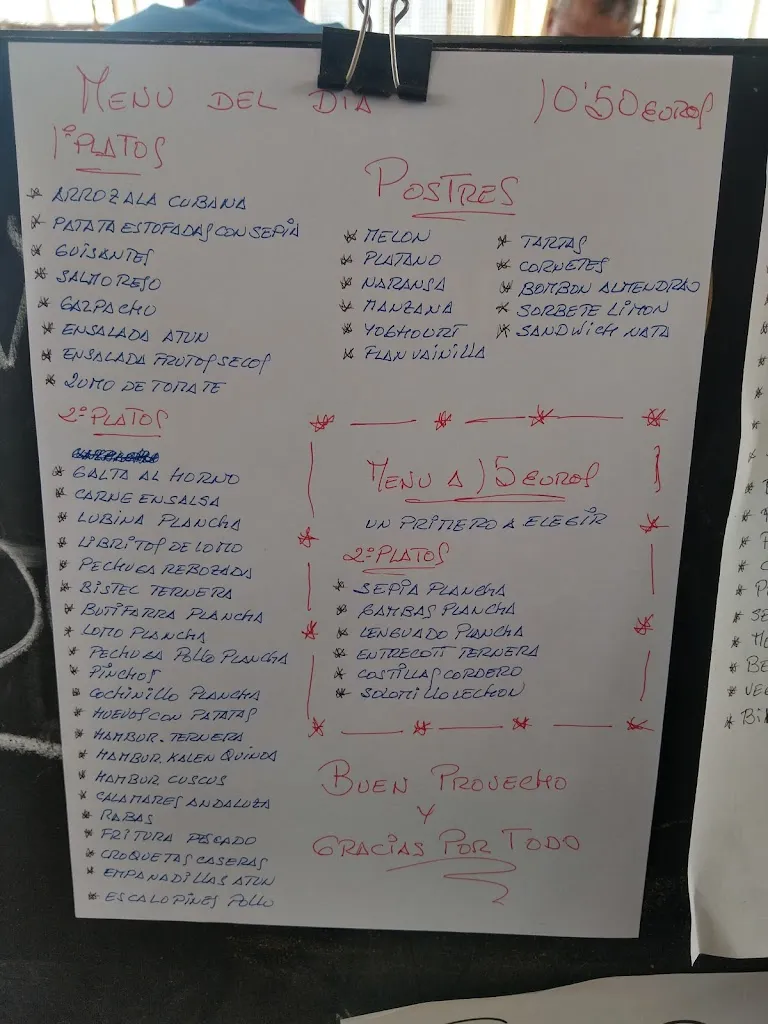 MENU DEL DIA
10'50 EUROS
1º PLATOS
* ARROZ A LA CUBANA
* PATATA ESTOFADAS CON SEPIA
* GUISANTES
* SALMOREJO
* GAZPACHO
* ENSALADA ATUN
* ENSALADA FRUTOS SECOS
* ZUMO DE TOMATE
2º PLATOS
* GALTA AL HORNO
* CARNE EN SALSA
* LUBINA PLANCHA
* LIBRITOS DE LOMO
* PECHUGA REBOZADA
* BISTEC TERNERA
* BUTIFARRA PLANCHA
* LOMO PLANCHA
* PECHUGA POLLO PLANCHA
* PINCHOS
* COCHINILLO PLANCHA
* HUEVOS CON PATATAS
* HAMBUR. TERNERA
* HAMBUR. KALEN QUINOA
* HAMBUR CUSCUS
* CALAMARES ANDALUZA
* RABAS
* FRITURA PESCADO
* CROQUETAS CASERAS
* EMPANADILLAS ATUN
* ESCALOPINES POLLO
POSTRES
* MELON
* PLATANO
* NARANJA
* MANZANA
* YOGHOURT
* FLAN VAINILLA
* TARTAS
* CORNETES
* BOMBON ALMENDRAO
* SORBETE LIMON
* SANDWICH NATA
MENU A 15 EUROS
UN PRIMERO A ELEGIR
2º PLATOS
* SEPIA PLANCHA
* GAMBAS PLANCHA
* LENGUADO PLANCHA
* ENTRECOTT TERNERA
* COSTILLAS CORDERO
* SOLOMILLO LECHON
BUEN PROVECHO
Y
GRACIAS POR TODO